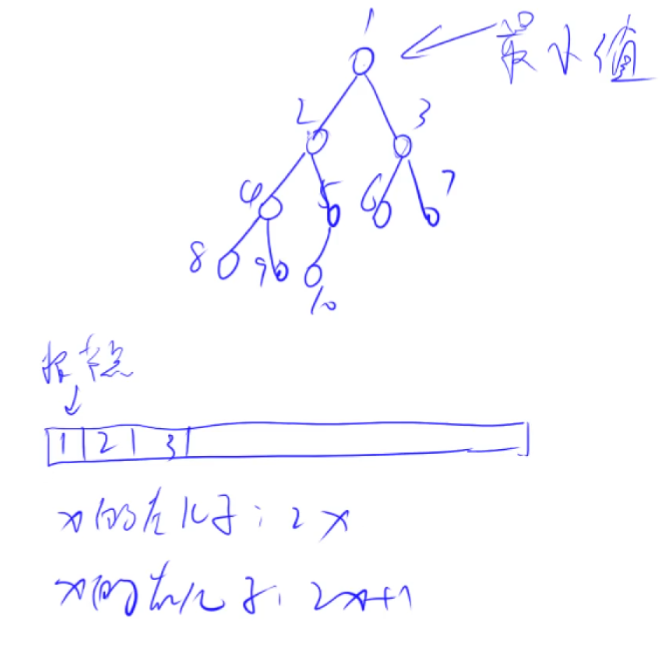 1
最小值
2 3
4 5 6 7
8 9 10
根节点
1 2 3
x的左儿子: 2x
x的右儿子: 2x+1